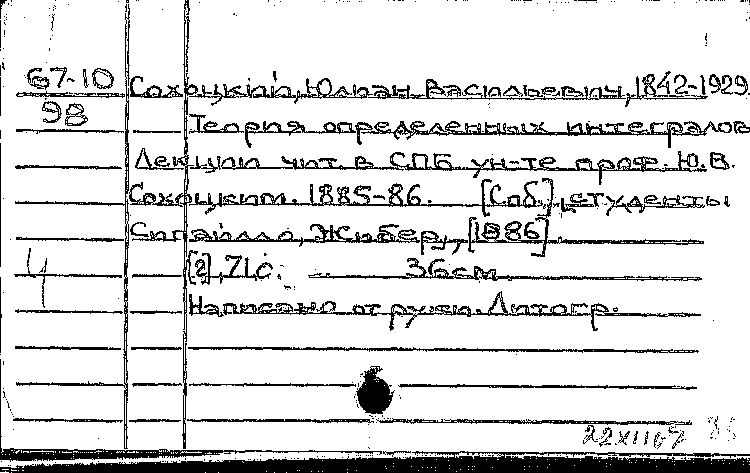 67-10 Сохоцкий, Юлиан Васильевич, 1842-1929.
98 Теория определенных интегралов
Лекции чит. в СПБ ун-те проф. Ю.В.
Сохоцким. 1885-86. [Спб.], студенты
Сипайлло, Жибер, [1886].
Ч [2], 71 с. 36 см.
Написано от руки. Литогр.
22 XII 67 36